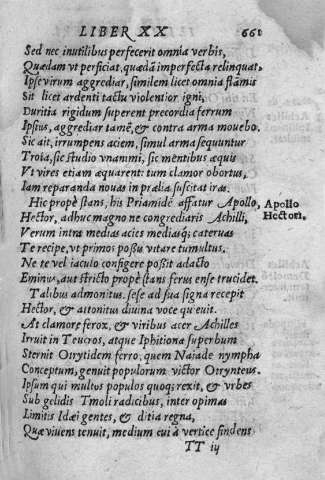 LIBER XX 661
Sed nec inutilibus perfecerit omnia verbis,
Quædam vt perficiat, quædã imperfecta relinquat.
Ipse virum aggrediar, similem licet omnia flãmis
Sit licet ardenti tactu violentior igni,
Duritia rigidum superent precordia ferrum
Ipsius, aggrediar tamẽ, & contra arma mouebo.
Sic ait, irrumpens aciem, simul arma sequuntur
Troia, sic studio vnanimi, sic mentibus æquis
Vt vires etiam æquarent: tum clamor obortus,
Iam reparanda nouas in prælia suscitat iras.
Hic propè stans, his Priamidẽ affatur Apollo,
Apollo Hectori.
Hector, adhuc magno ne congrediaris Achilli,
Verum intra medias acies mediasq; cateruas
Te recipe, vt primos poßis vitare tumultus.
Ne te vel iaculo configere poßit adacto
Eminus, aut stricto propè stans ferus ense trucidet.
Talibus admonitus, sese ad sua signa recepit
Hector, & attonitus diuina voce quieuit.
At clamore ferox, & viribus acer Achilles
Irruit in Teucros, atque Iphitiona superbum
Sternit Otrytidem ferro, quem Naiade nympha
Conceptum, genuit populorum victor Otrynteus.
Ipsum qui multos populos quoq; rexit, & vrbes
Sub gelidis Tmoli radicibus, inter opimas
Limitis Idæi gentes, & ditia regna,
Quæ viuens tenuit, medium cui à vertice findens
TT iij